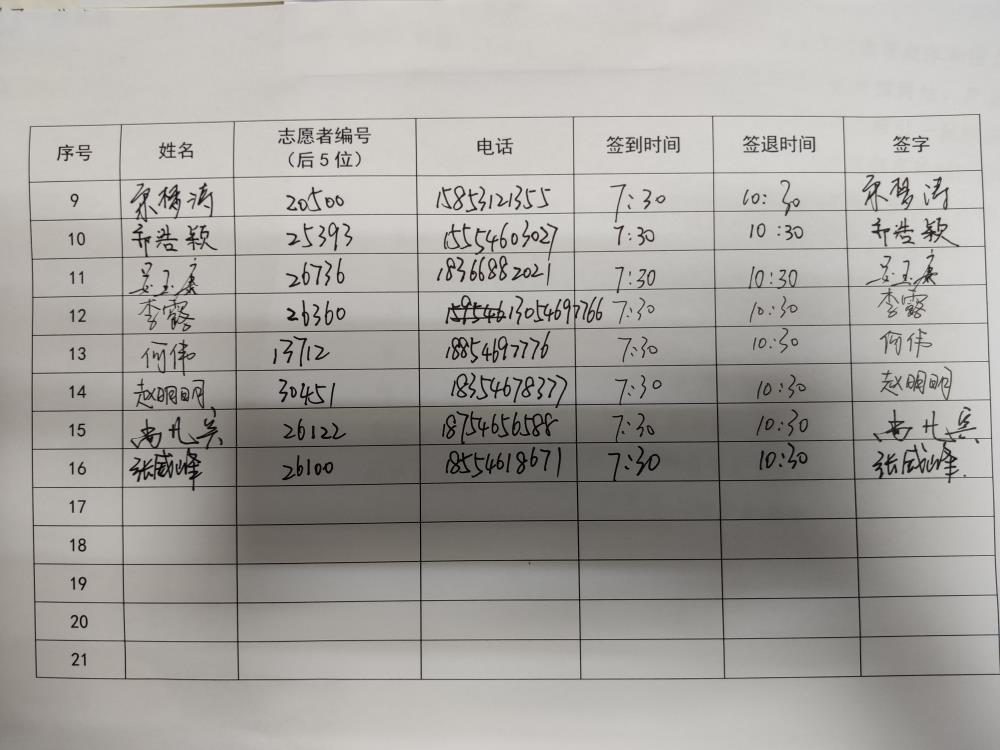 序号 姓名 志愿者编号（后5位） 电话 签到时间 签退时间 签字
9 宋梦涛 20500 15853121355 7:30 10:30 宋梦涛
10 郝浩颖 25393 15554603027 7:30 10:30 郝浩颖
11 吴玉康 26736 18366882021 7:30 10:30 吴玉康
12 李露 26360 13054697766 7:30 10:30 李露
13 何伟 13712 18854697776 7:30 10:30 何伟
14 赵明明 30451 18354678377 7:30 10:30 赵明明
15 26122 18754656588 7:30 10:30
16 张威峰 26100 18554618671 7:30 10:30 张威峰
17
18
19
20
21